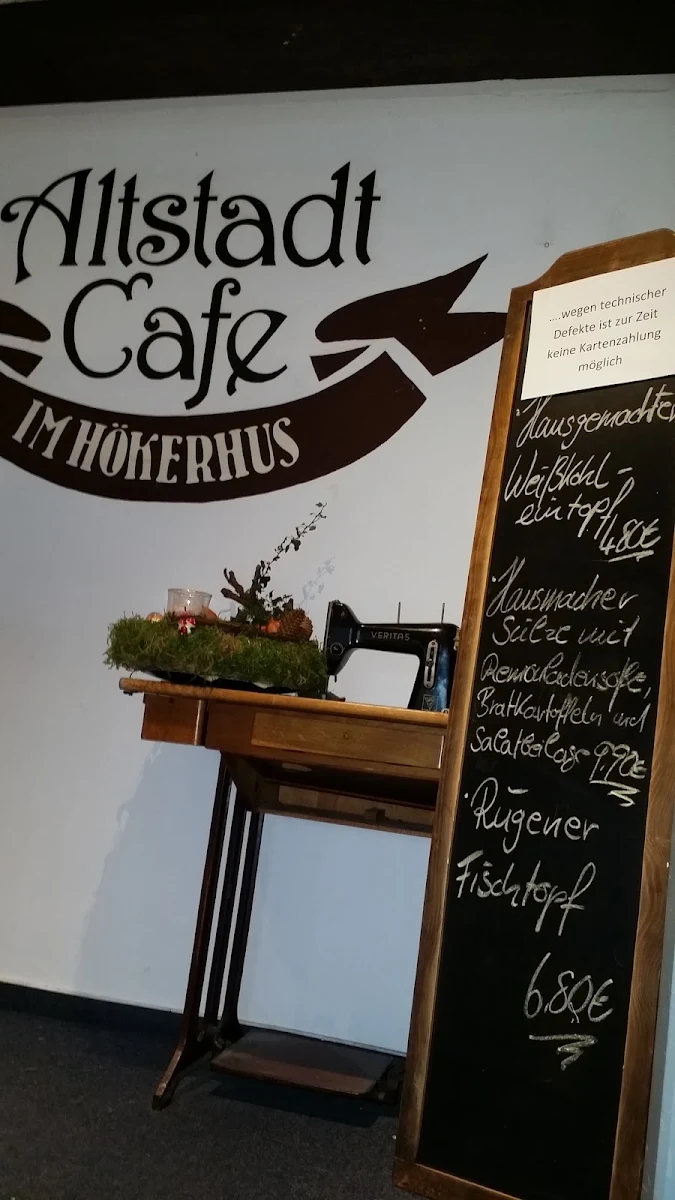 Altstadt
Cafe
IM HÖKERHUS
VERITAS
....wegen technischer
Defekte ist zur Zeit
keine Kartenzahlung
möglich
· Hausgemachter
Weißkohl-
eintopf
4,80€
· Hausmacher
Sülze mit
Remouladensoße,
Bratkartoffeln und
Salatbeilage 9,90€
· Rügener
Fischtopf
6.80€